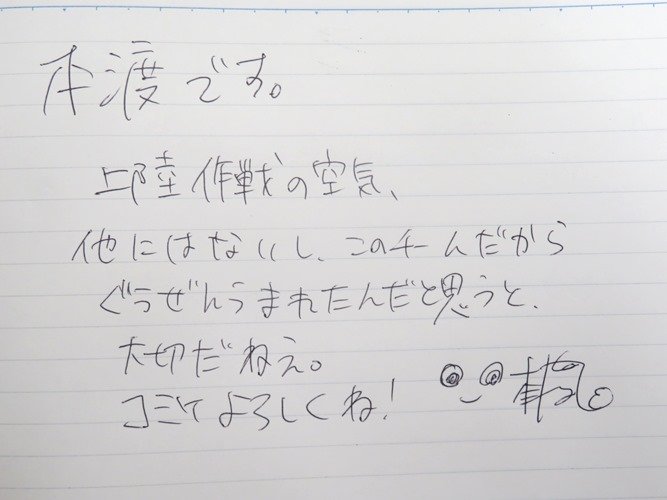 本渡です。
上陸作戦の空気、
他にはないし、このチームだから
ぐうぜんうまれたんだと思うと、
大切だねえ。
コミケよろしくね!